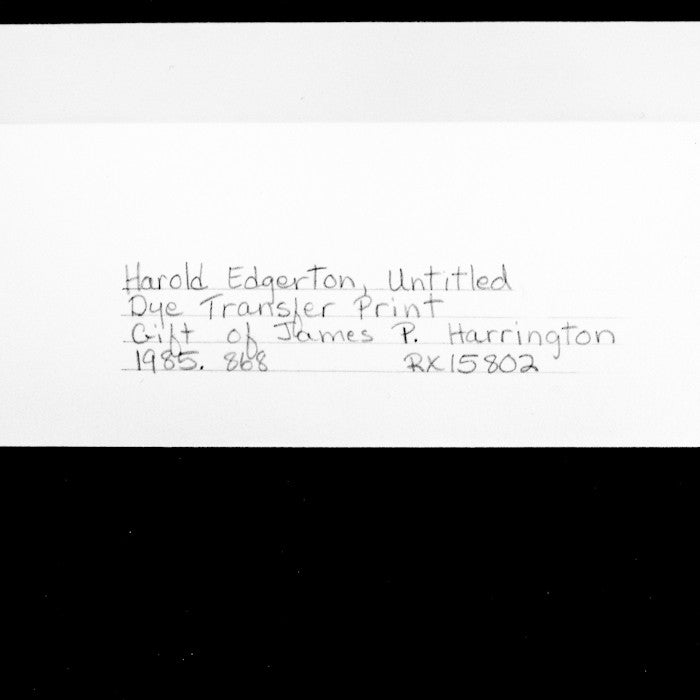 Harold Edgerton, Untitled
Dye Transfer Print
Gift of James P. Harrington
1985. 868 RX15802